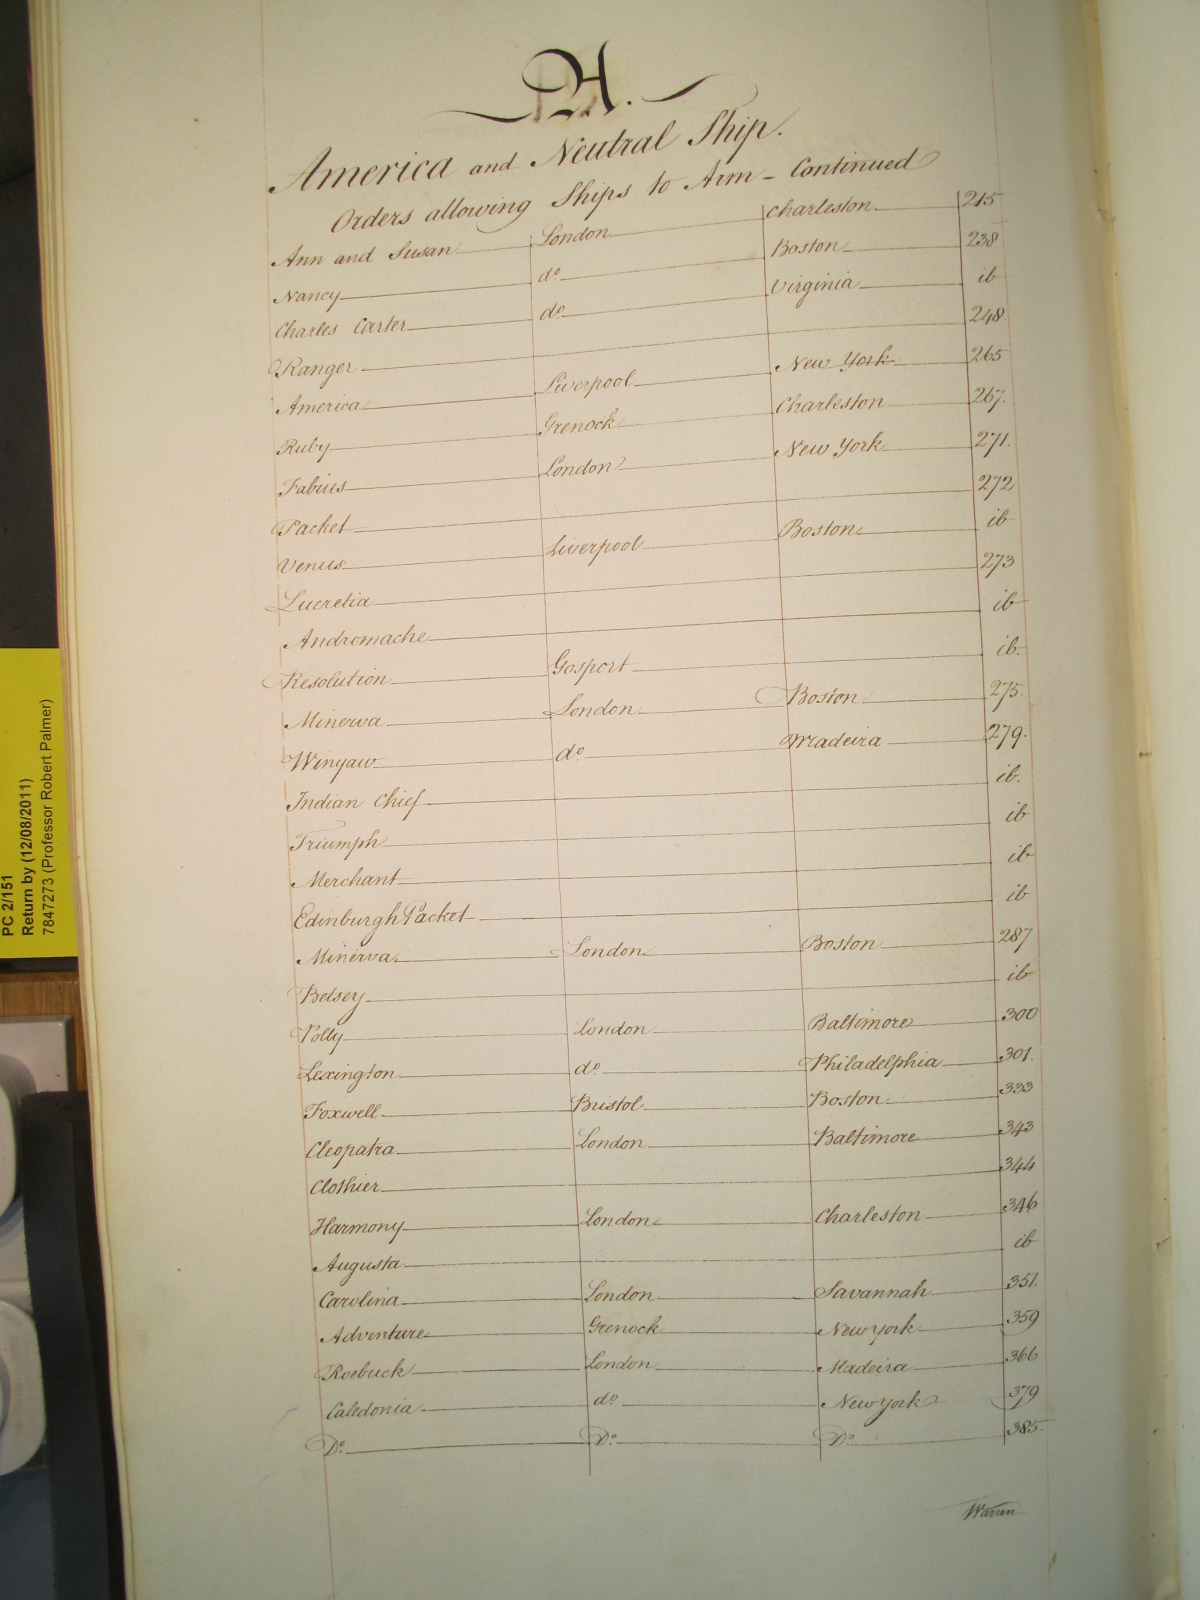 A.
America and Neutral Ship.
Orders allowing Ships to Arm - Continued
Ann and Susan London Charleston 215
Nancy do Boston 238
Charles Carter do Virginia ib
Ranger 248
America Liverpool New York 265
Ruby Grenock Charleston 267.
Fabius London New York 271.
Packet 272
Venus Liverpool Boston ib
Lucretia 273
Andromache ib
Resolution Gosport ib.
Minerva London Boston 275.
Winyaw do Madeira 279.
Indian Chief ib.
Triumph ib
Merchant ib
Edinburgh Packet ib
Minerva London Boston 287
Betsey ib
Polly London Baltimore 300
Lexington do Philadelphia 301.
Foxwell Bristol Boston 333
Cleopatra London Baltimore 343
Clothier 344
Harmony London Charleston 346
Augusta ib
Carolina London Savannah 351.
Adventure Grenock New York 359
Roebuck London Madeira 366
Caledonia do New York 379
Do Do Do 385.
Warren
PC 2/151
Return by (12/08/2011)
7847273 (Professor Robert Palmer)